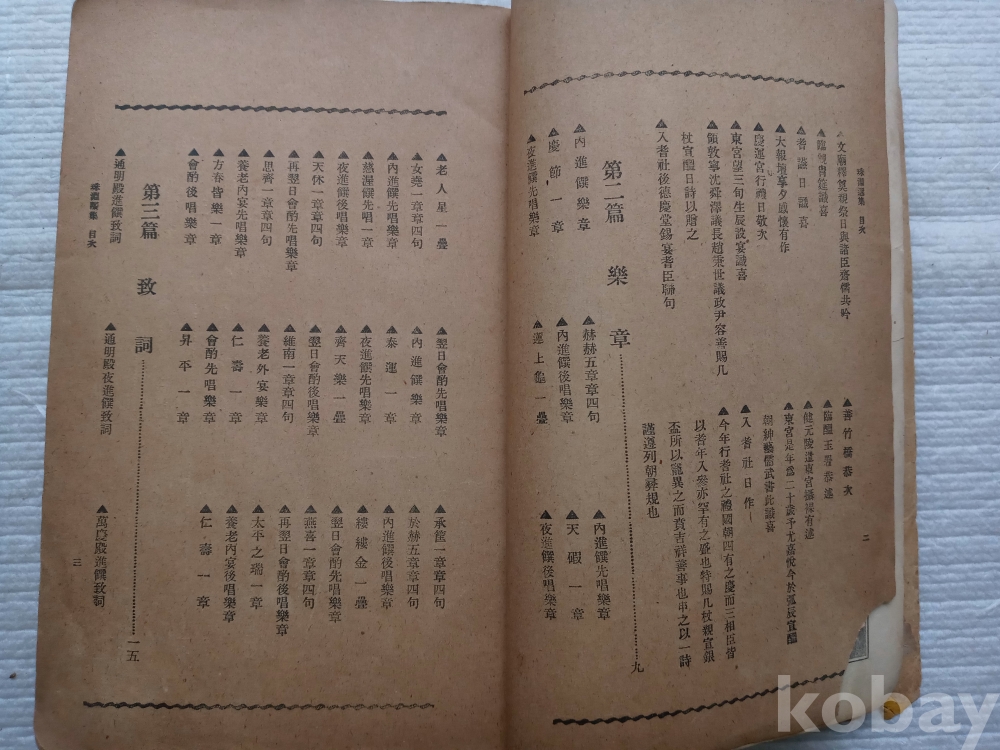 珠淵選集 目次
二
▲文廟釋奠親祭日與諸臣齋懷共吟
▲華竹醬恭次
▲臨醞玉署恭述
▲耆讌日識喜
▲大報壇享夕感懷有作
東宮是年爲二十歲予尤嘉悅今於弧辰宣醞
朝紳藝儒武書此識喜
▲慶運宮行禮日敬次
▲入耆社日作
▲東宮望三旬生辰設宴識喜
▲今年行耆社之禮國朝四有之慶而三相臣皆
▲領敦寧沈舜澤議長趙秉世議政尹容善賜几
以耆年入參亦罕有之盛也特賜几杖親宣銀
杖宣醞日詩以贈之
盃所以寵異之而賁吉祥善事也申之以一詩
▲入耆社後德慶堂錫宴耆臣聯句
謹遵列朝彛規也
第二篇 樂章
九
▲內進饌樂章
▲赫赫五章章四句
▲內進饌先唱樂章
▲慶節一章
▲內進饌後唱樂章
▲天嘏一章
▲夜進饌先唱樂章
▲運上龜一疊
▲夜進饌後唱樂章
▲老人星一疊
▲翌日會酌先唱樂章
▲承筐一章章四句
▲女堯一章章四句
▲內進饌樂章
▲於赫五章章四句
▲內進饌先唱樂章
▲泰運一章
▲內進饌後唱樂章
▲慈渥饌先唱一章
▲夜進饌先唱樂章
▲縷縷金一疊
▲夜進饌後唱樂章
▲齊天樂一疊
▲翌日會酌先唱樂章
▲天休一章章四句
▲翌日會酌後唱樂章
▲燕喜一章章四句
▲再翌日會酌先唱樂章
▲維南一章章四句
▲再翌日會酌後唱樂章
▲思齊一章章四句
▲養老外宴樂章
▲太平之瑞一章
▲養老內宴先唱樂章
▲仁壽一章
▲養老內宴後唱樂章
▲方春皆樂一章
▲會酌先唱樂章
▲仁壽一章
▲會酌後唱樂章
▲昇平一章
第三篇 致詞
一五
▲通明殿進饌致詞
▲通明殿夜進饌致詞
▲萬慶殿進饌致詞
珠淵選集 目次
三
kobay